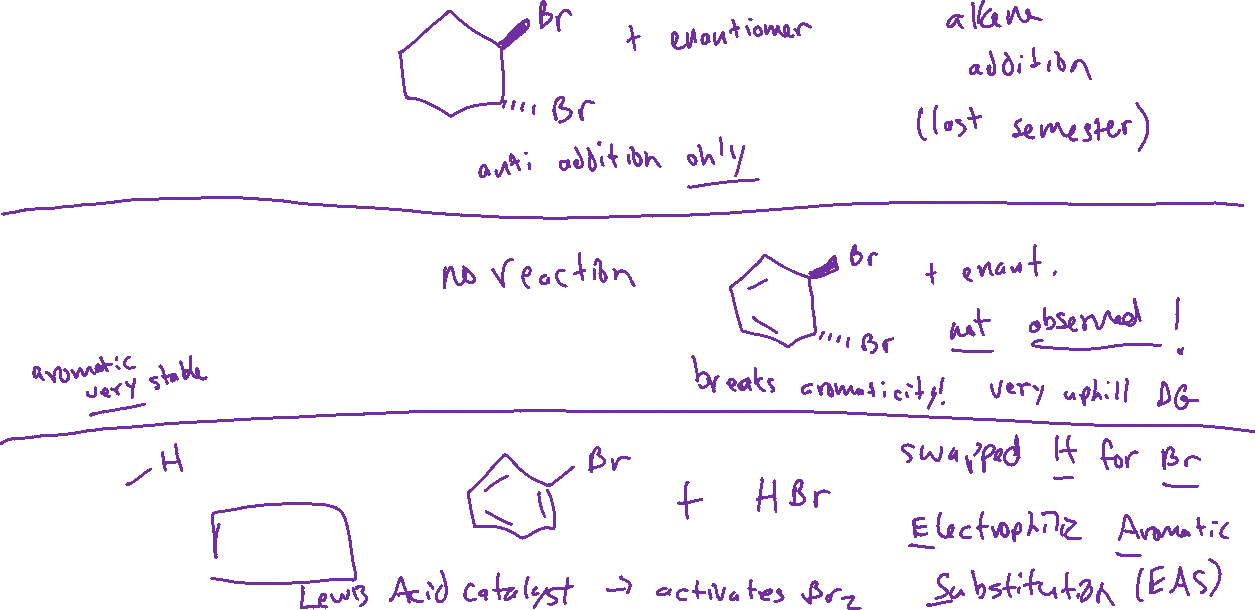 Br
+ enantiomer
Br
anti addition only
alkene
addition
(last semester)
no reaction
Br
+ enant.
Br
not observed!
breaks aromaticity! very uphill ΔG
aromatic
very stable
H
Br
+ HBr
swapped H for Br
Electrophilic Aromatic
Substitution (EAS)
Lewis Acid catalyst → activates Br2